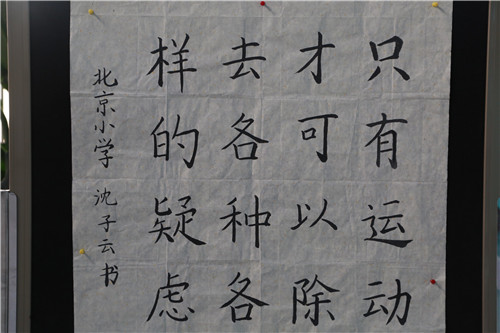 只有运动
才可以除
去各种各
样的疑虑
北京小学 沈子云书